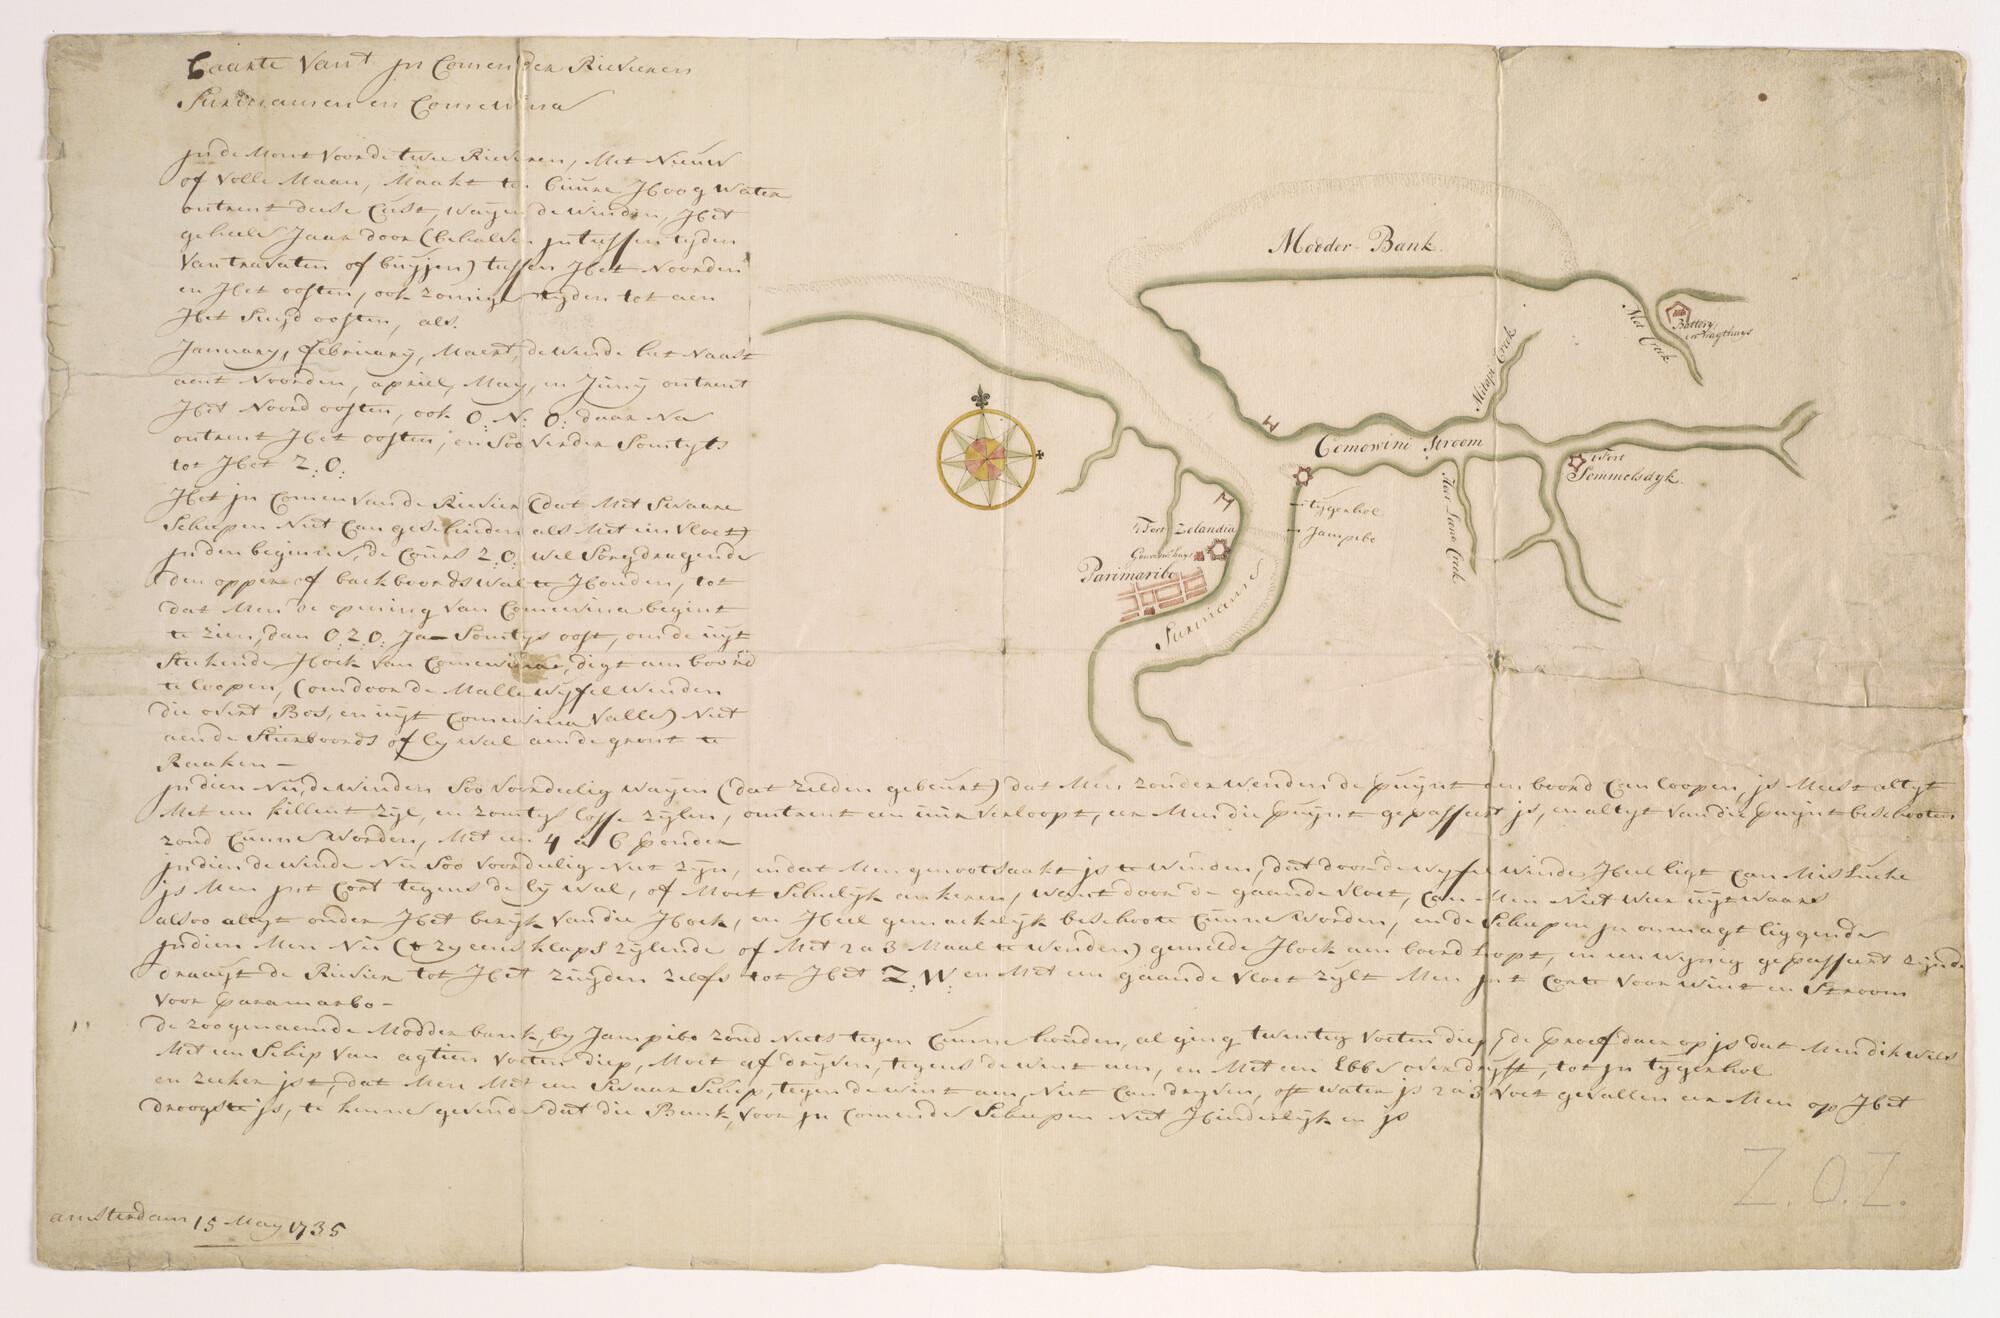 Caarte Vant jn Comen der Rievieren
Surinaamen en Comewina
jnde Mont Voor de twee Rievieren, Met Nieuw
of Volle Maan, Maakt ten 6 uure Hoog Water
ontrent dese Cust, Wayen de Winden, Het
geheele Jaar door (behalven jntussen tyden
Van travaten of buyjen) tussen Het Noorden
en Het oosten, ook zomige tyden tot aen
Het Suyd oosten, als.
January, february, Maert, de Winde het Naast
aent Noorden, apriel, May, en Juny ontrent
Het Noord oosten, ook O: N: O: daar Na
ontrent Het oosten, en Soo Verder Somtyts
tot Het Z: O:
Het jn Comen Vande Rievier (dat Met Swaare
Scheepen Niet Can geschieden als Met een Vloet)
jnden beginne, de Cours Z: O: wel Sorgdragende
den opper of backboords wal te Houden, tot
dat Men de opening Van Comewina begint
te zien, dan O: Z: O: Ja Somtys oost, om de uyt
Stekende Hoek Van Comewina, digt aen boord
te loopen, (om door de Malle Wyfel Winden
die overt Bos, en uyt Comewina Valle) Niet
aende Stierboords of ly wal aende gront te
Raaken —
jndien Nu, de Winden Soo Voordeelig Wayen (dat zelden gebeurt) dat Men zonder Wenden de puynt aen boord Can loopen, js Meest altyt
Met een killent zyl, en zomtys losse zylen, ontrent een uur Verloopt, eer Men die puynt gepasseert js, en altyt Van die puynt beschooten
zoud Cunne Worden, Met een 4 a 6 ponder
jndien de Winde Nu Soo Voordeelig Niet zyn, en dat Men genootsaakt js te Winden, dat door de Wyfel Winde, Heel ligt Can Mis lucke
js Men jnt Cort tegens de ly Wal, of Moet Schielyk ankeren, Want door de gaande Vloet, Can Men Niet Weer uyt Waars
alsoo altyt onder Het beryk Van die Hoek, en Heel gemackelyk beschoote Cunne Worden, en de Scheepen jn onmagt liggende
jndien Men Nu (t zy eens klaps zylende of Met 2 a 3 Maal te Wenden) gemelde Hoek aen boord loopt, en een Wynig gepasseert zynde
draayt de Rievier tot Het zuyden zelfs tot Het Z: W: en Met een gaande Vloet zylt Men jnt Corte Voor Wint en Stroom
Voor paramarbo —
de zoo genaemde Modder bank, by Jampibo zoud Niets tegen Cunne houden, al ging twenteg Voeten diep (de proef daer op js dat Men dikwils
Met een Schip Van agtien Voeten diep, Moet af dryven, tegens de Wint aen, en Met een Ebbe over dryft, tot jn tygerhol
en zeeker jst, dat Men Met een Swaar Schip, tegen de Wint aen, Niet Can dryven, oft Water js 2 a 3 Voet gevallen eer Men op Het
droogste js, te kenne gevende dat die Bank, Voor jn Comende Scheepen Niet Hinderlyk en js
amsterdam 15 May 1735
Modder-Bank.
Mot Creek
Battery en Wagthuys
Mitapi Creek
Comowini Stroom
't Fort
Sommelsdyk.
tygerhol
Jampibo
't Fort Zelandia
Gouvernhuys
Parimaribo
Suriname
Z. O. Z.